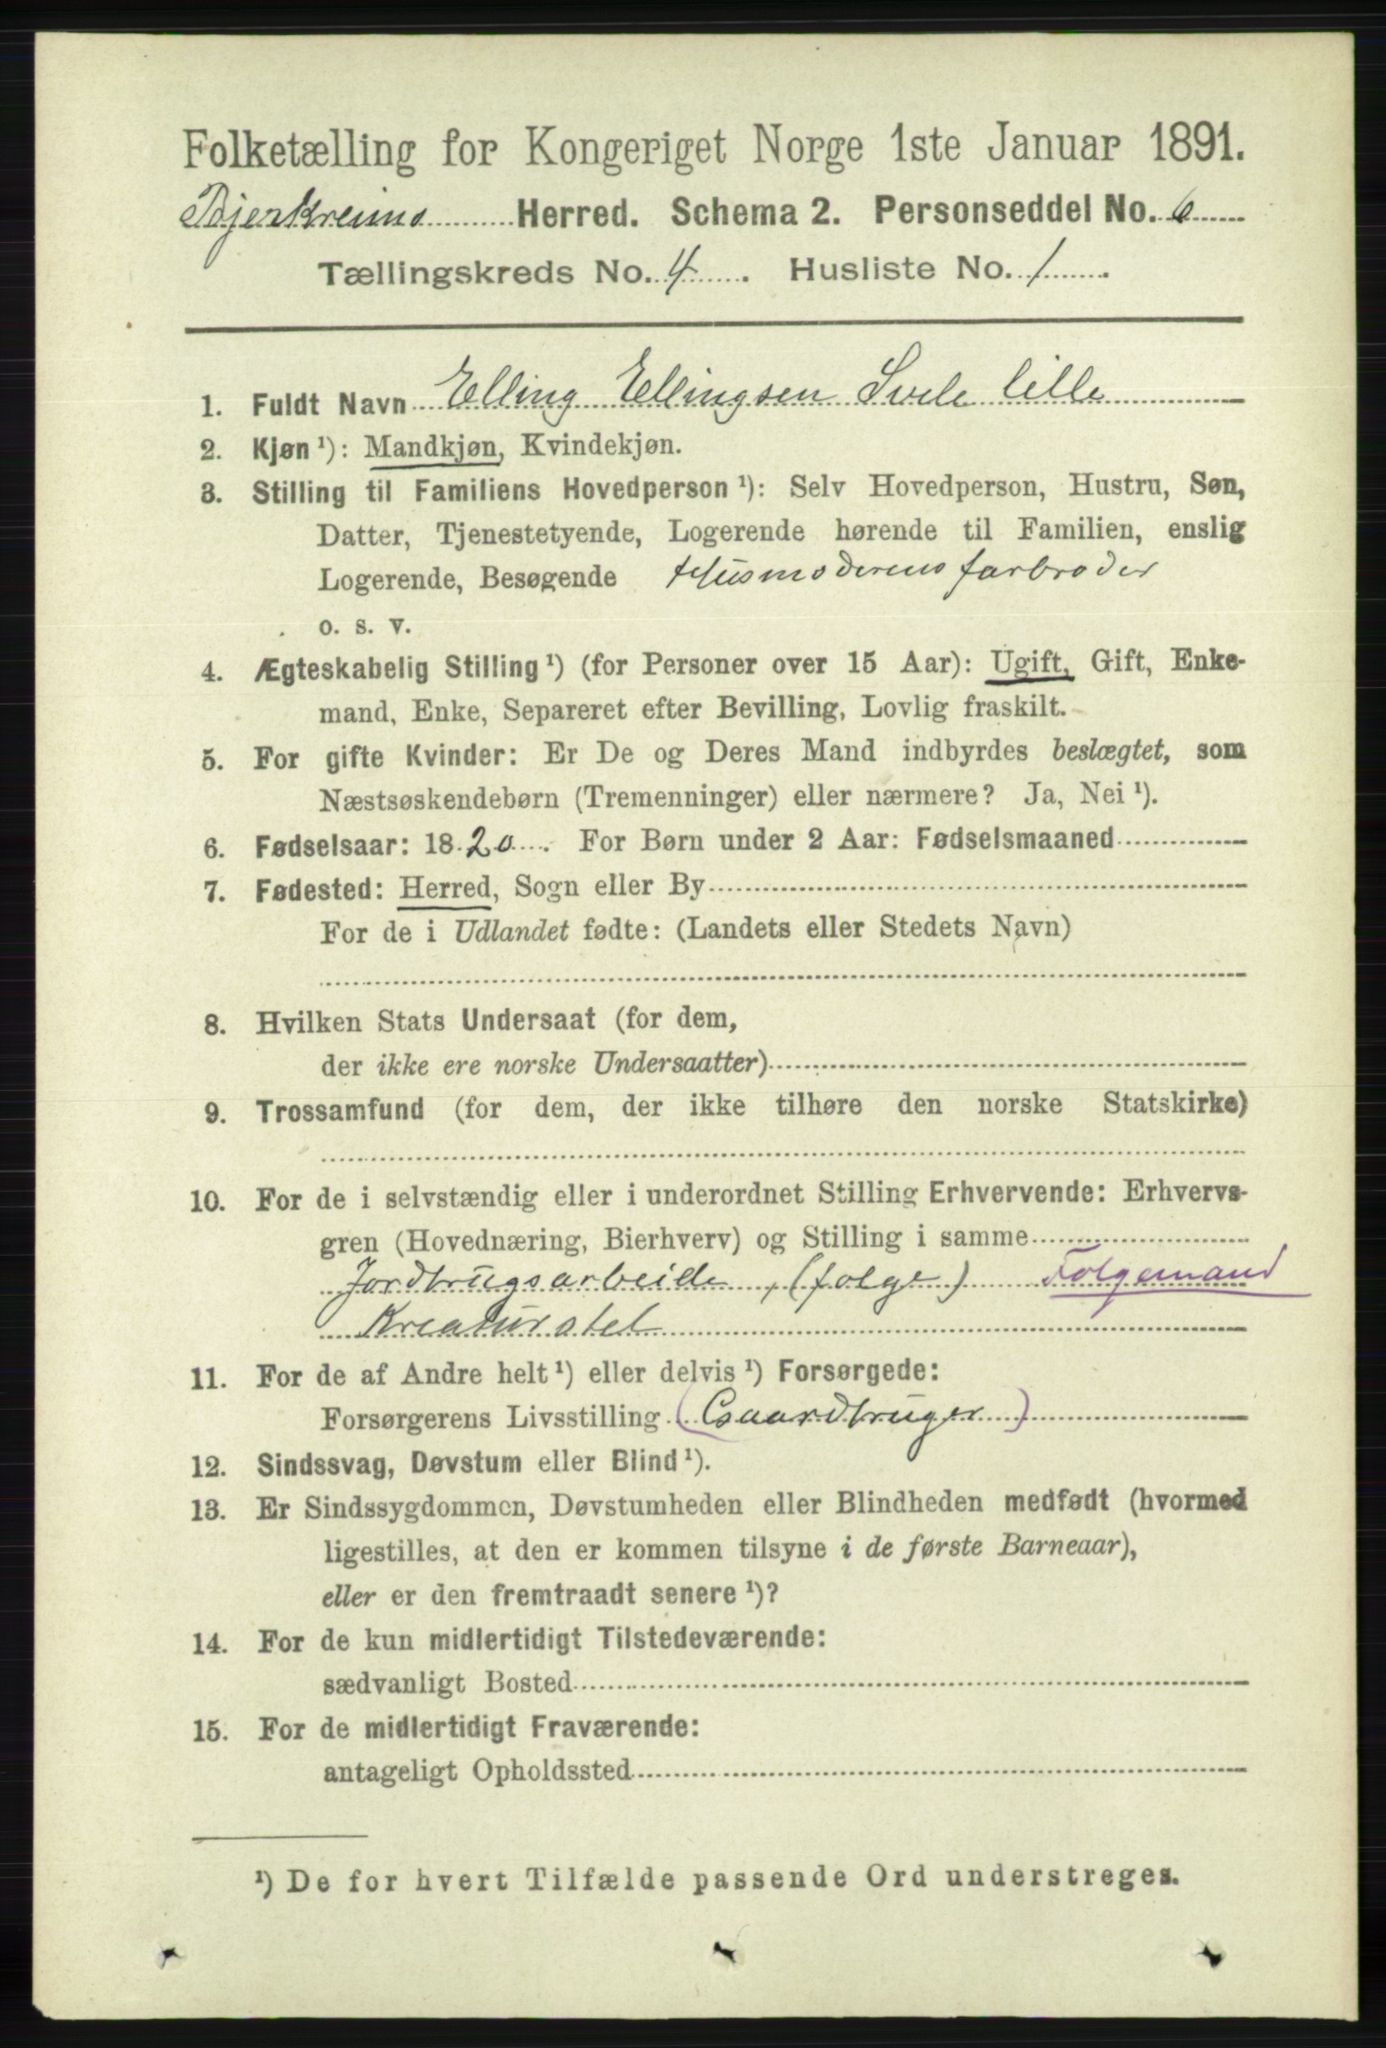 Folketælling for Kongeriget Norge 1ste Januar 1891.
Bjerkreims Herred. Schema 2. Personseddel No. 6
Tællingskreds No. 4. Husliste No. 1.
1. Fuldt Navn Elling Ellingsen Svele lille
2. Kjøn ¹): Mandkjøn, Kvindekjøn.
3. Stilling til Familiens Hovedperson ¹): Selv Hovedperson, Hustru, Søn,
Datter, Tjenestetyende, Logerende hørende til Familien, enslig
Logerende, Besøgende Husmoderens farbroder
o. s. v.
4. Ægteskabelig Stilling ¹) (for Personer over 15 Aar): Ugift, Gift, Enke-
mand, Enke, Separeret efter Bevilling, Lovlig fraskilt.
5. For gifte Kvinder: Er De og Deres Mand indbyrdes beslægtet, som
Næstsøskendebørn (Tremenninger) eller nærmere? Ja, Nei ¹).
6. Fødselsaar: 1820. For Børn under 2 Aar: Fødselsmaaned
7. Fødested: Herred, Sogn eller By
For de i Udlandet fødte: (Landets eller Stedets Navn)
8. Hvilken Stats Undersaat (for dem,
der ikke ere norske Undersaatter)
9. Trossamfund (for dem, der ikke tilhøre den norske Statskirke)
10. For de i selvstændig eller i underordnet Stilling Erhvervende: Erhvervs-
gren (Hovednæring, Bierhverv) og Stilling i samme
Jordbrugsarbeide, (folge) Folgemand
Kreaturstel
11. For de af Andre helt ¹) eller delvis ¹) Forsørgede:
Forsørgerens Livsstilling (Gaardbruger)
12. Sindssvag, Døvstum eller Blind ¹).
13. Er Sindssygdommen, Døvstumheden eller Blindheden medfødt (hvormed
ligestilles, at den er kommen tilsyne i de første Barneaar),
eller er den fremtraadt senere ¹)?
14. For de kun midlertidigt Tilstedeværende:
sædvanligt Bosted
15. For de midlertidigt Fraværende:
antageligt Opholdssted
¹) De for hvert Tilfælde passende Ord understreges.